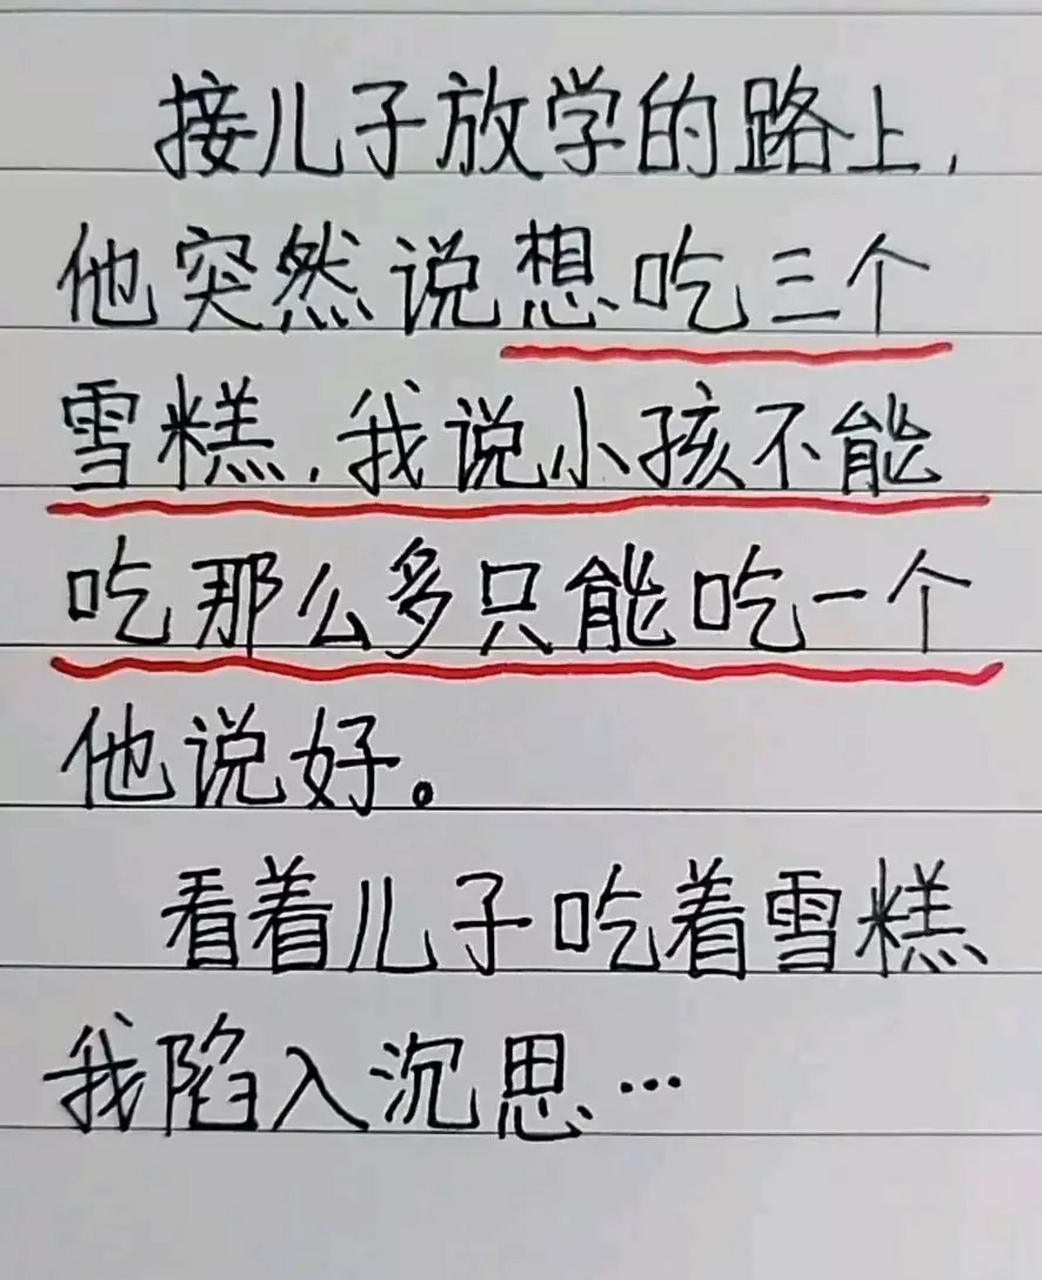 接儿子放学的路上,
他突然说想吃三个
雪糕,我说小孩不能
吃那么多只能吃一个
他说好。
看着儿子吃着雪糕
我陷入沉思…